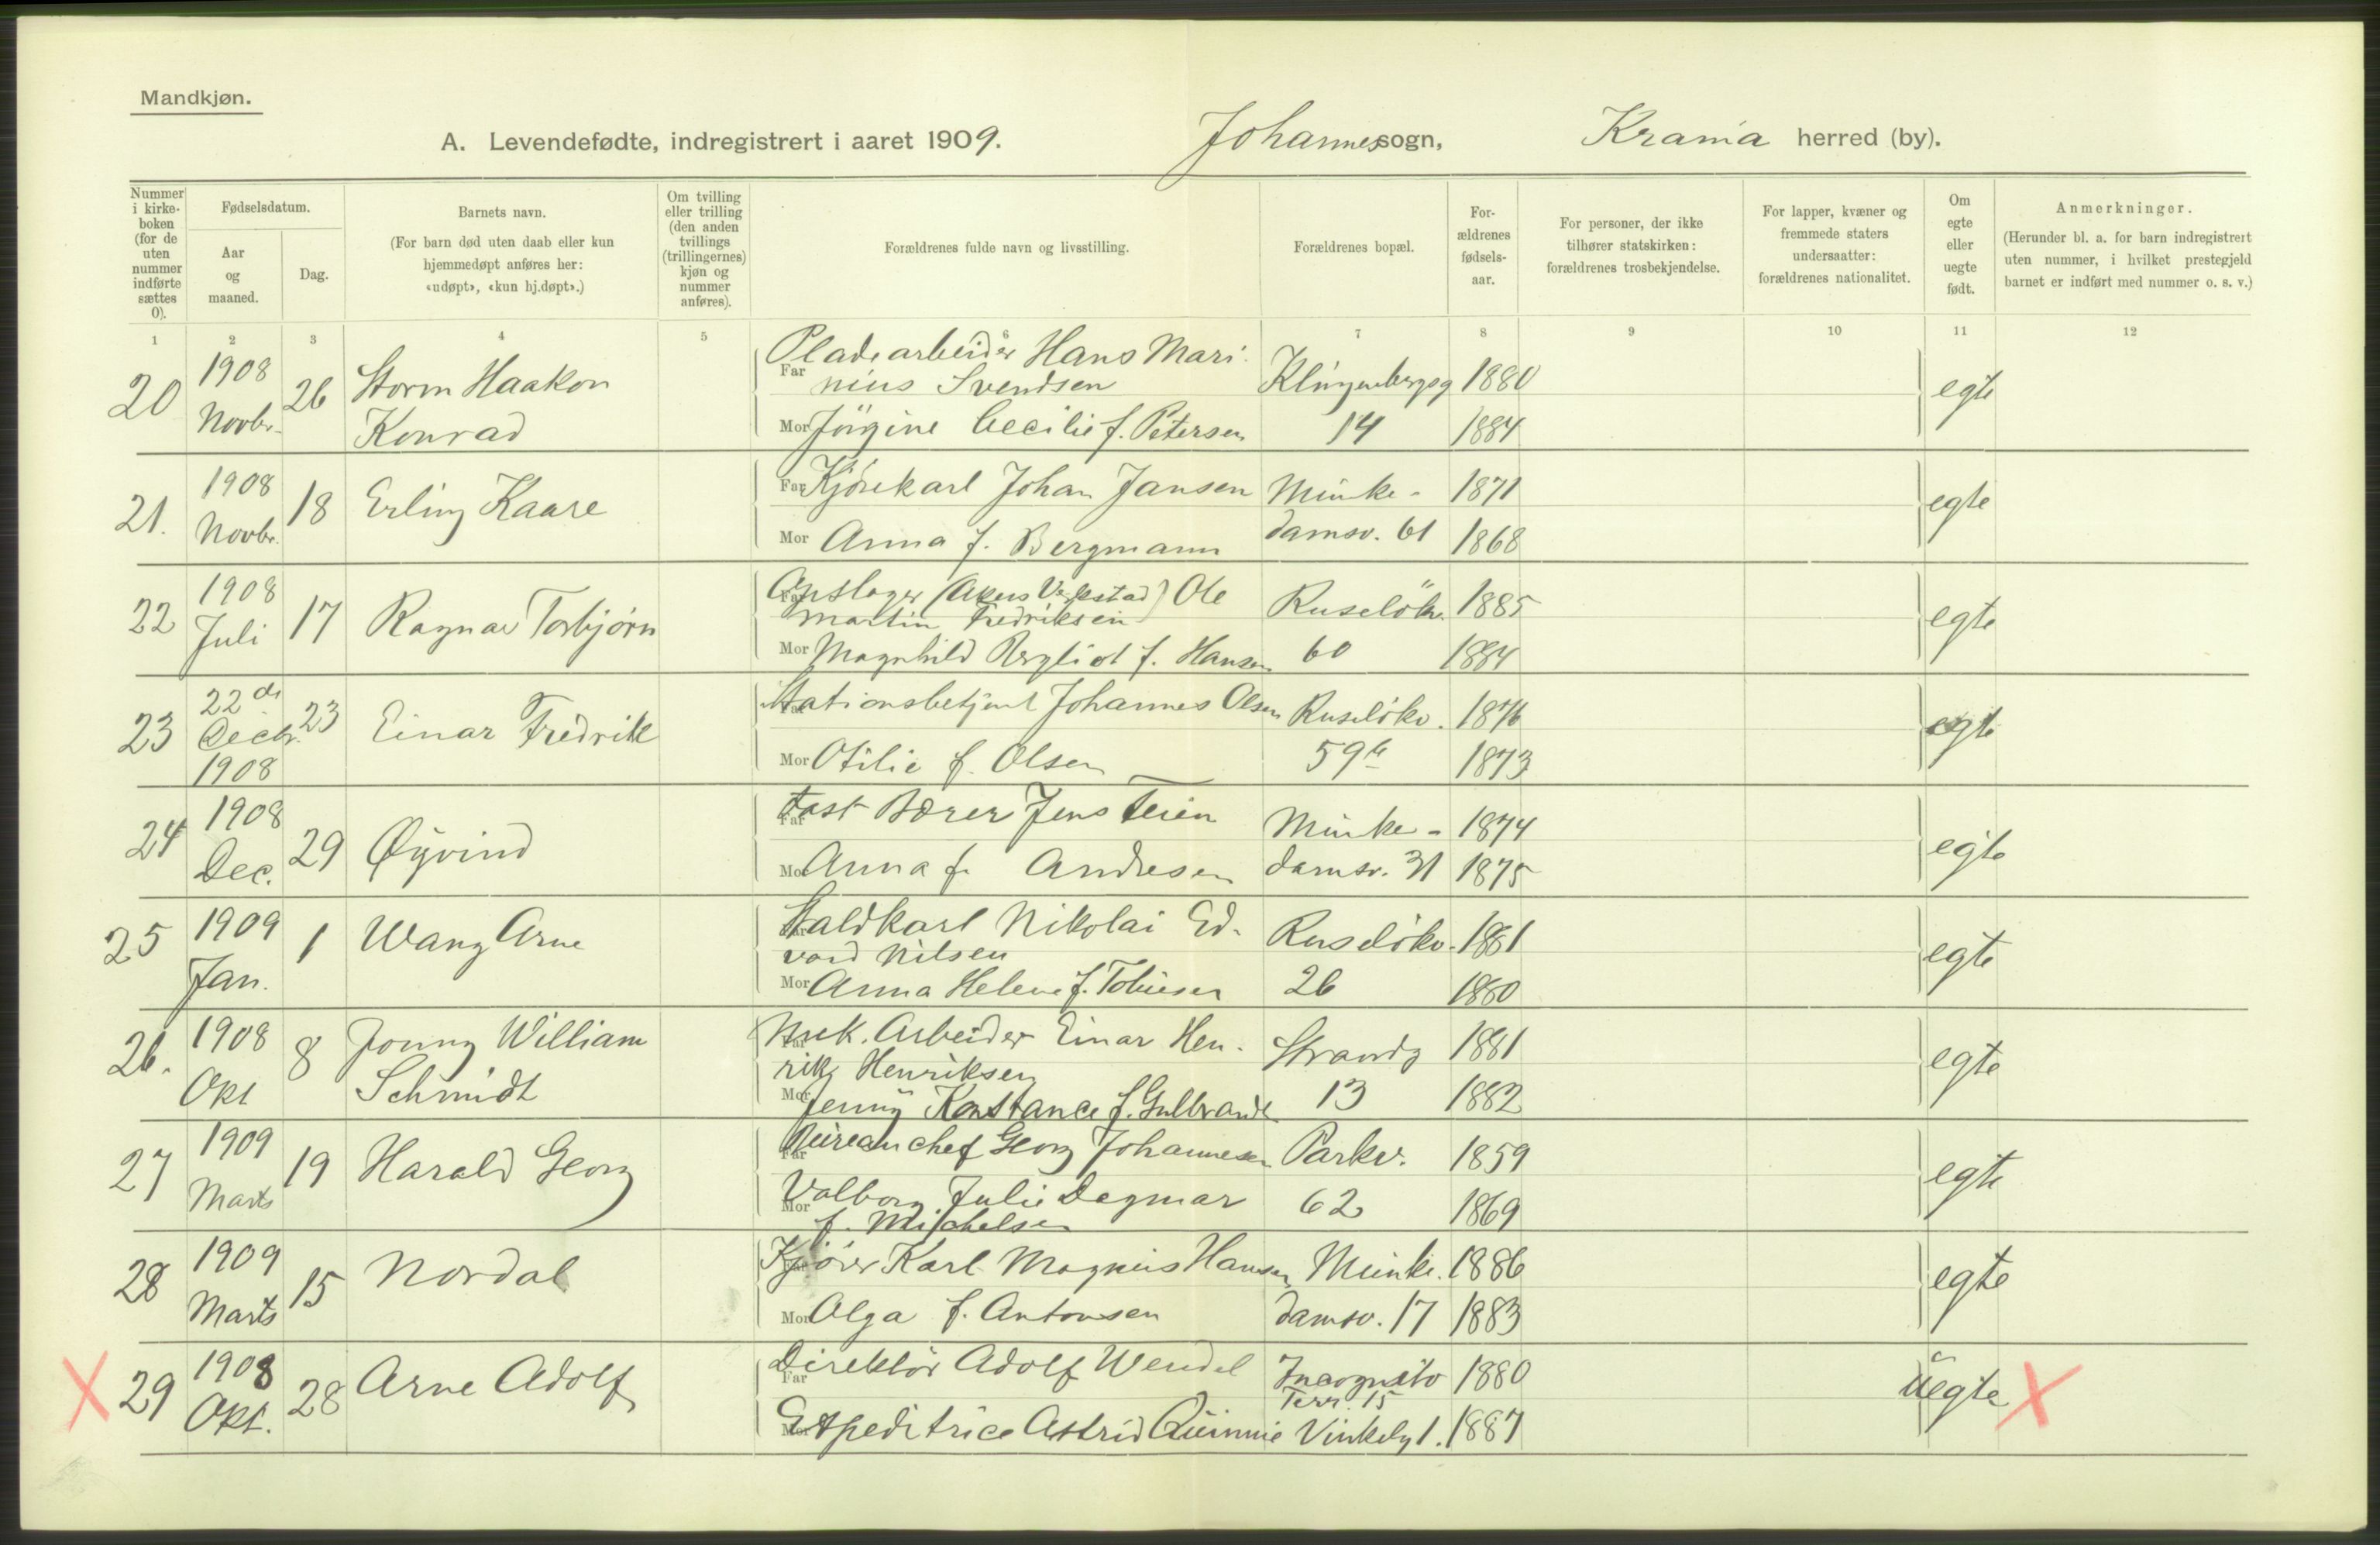 Mandkjøn.
A. Levendefødte, indregistrert i aaret 1909. Johannes sogn, Krania herred (by).
Nummer i kirkeboken (for de uten nummer indførte sættes 0).
Fødselsdatum.
Aar og maaned.
Dag.
Barnets navn.
(For barn død uten daab eller kun hjemmedøpt anføres her: «udøpt», «kun hj.døpt».)
Om tvilling eller trilling (den anden tvillings (trillingernes) kjøn og nummer anføres).
Forældrenes fulde navn og livsstilling.
Forældrenes bopæl.
Forældrenes fødselsaar.
For personer, der ikke tilhører statskirken: forældrenes trosbekjendelse.
For lapper, kvæner og fremmede staters undersaatter: forældrenes nationalitet.
Om egte eller uegte født.
Anmerkninger.
(Herunder bl. a. for barn indregistrert uten nummer, i hvilket prestegjeld barnet er indført med nummer o. s. v.)
1 2 3 4 5 6 7 8 9 10 11 12
20 1908 Novbr. 26 Storm Haakon Konrad
Far Pladearbeider Hans Marinius Svendsen Klingenbergsg 1880 egte
Mor Jörgine Cecilie f. Petersen 14 1884
21. 1908 Novbr. 18 Erling Kaare
Far Kjørekarl Johan Jansen Munke- 1871 egte
Mor Anna f. Bergmann damsv. 61 1868
22 1908 Juli 17 Ragnar Torbjørn
Far Opslager (Akers Verkstad) Ole Martin Fredriksen Ruselökv. 1885 egte
Mor Magnhild Bergliot f. Hansen 60 1884
23 22de Decbr. 1908 23 Einar Fredrik
Far Stationsbetjent Johannes Olsen Ruselökv. 1876 egte
Mor Otilie f. Olsen 59b 1873
24 1908 Dec. 29 Øyvind
Far Fast Bærer Jens Teien Munke- 1874 egte
Mor Anna f. Andresen damsv. 31 1875
25 1909 Jan. 1 Wang Arne
Far Staldkarl Nikolai Edvard Nilsen Ruselökv. 1881 egte
Mor Anna Helene f. Tobiesen 26 1880
26. 1908 Okt 8 Jonny William Schmidt
Far Mek. Arbeider Einar Henrik Henriksen Strandg 1881 egte
Mor Jenny Konstance f. Gulbrands 13 1882
27 1909 Marts 19 Harald Georg
Far Bureauchef Georg Johannesen Parkv. 1859 egte
Mor Valborg Julie Dagmar f. Michelsen 62 1869
28 1909 Marts 15 Nordal
Far Kjører Karl Magnus Hansen Munke. 1886 egte
Mor Olga f. Antonsen damsv. 17 1883
29 1908 Okt. 28 Arne Adolf
Far Direktör Adolf Wendel Incognito Terr. 15 1880 uegte
Mor Expeditrice Astrid Quinnie Vinkelg 1. 1887